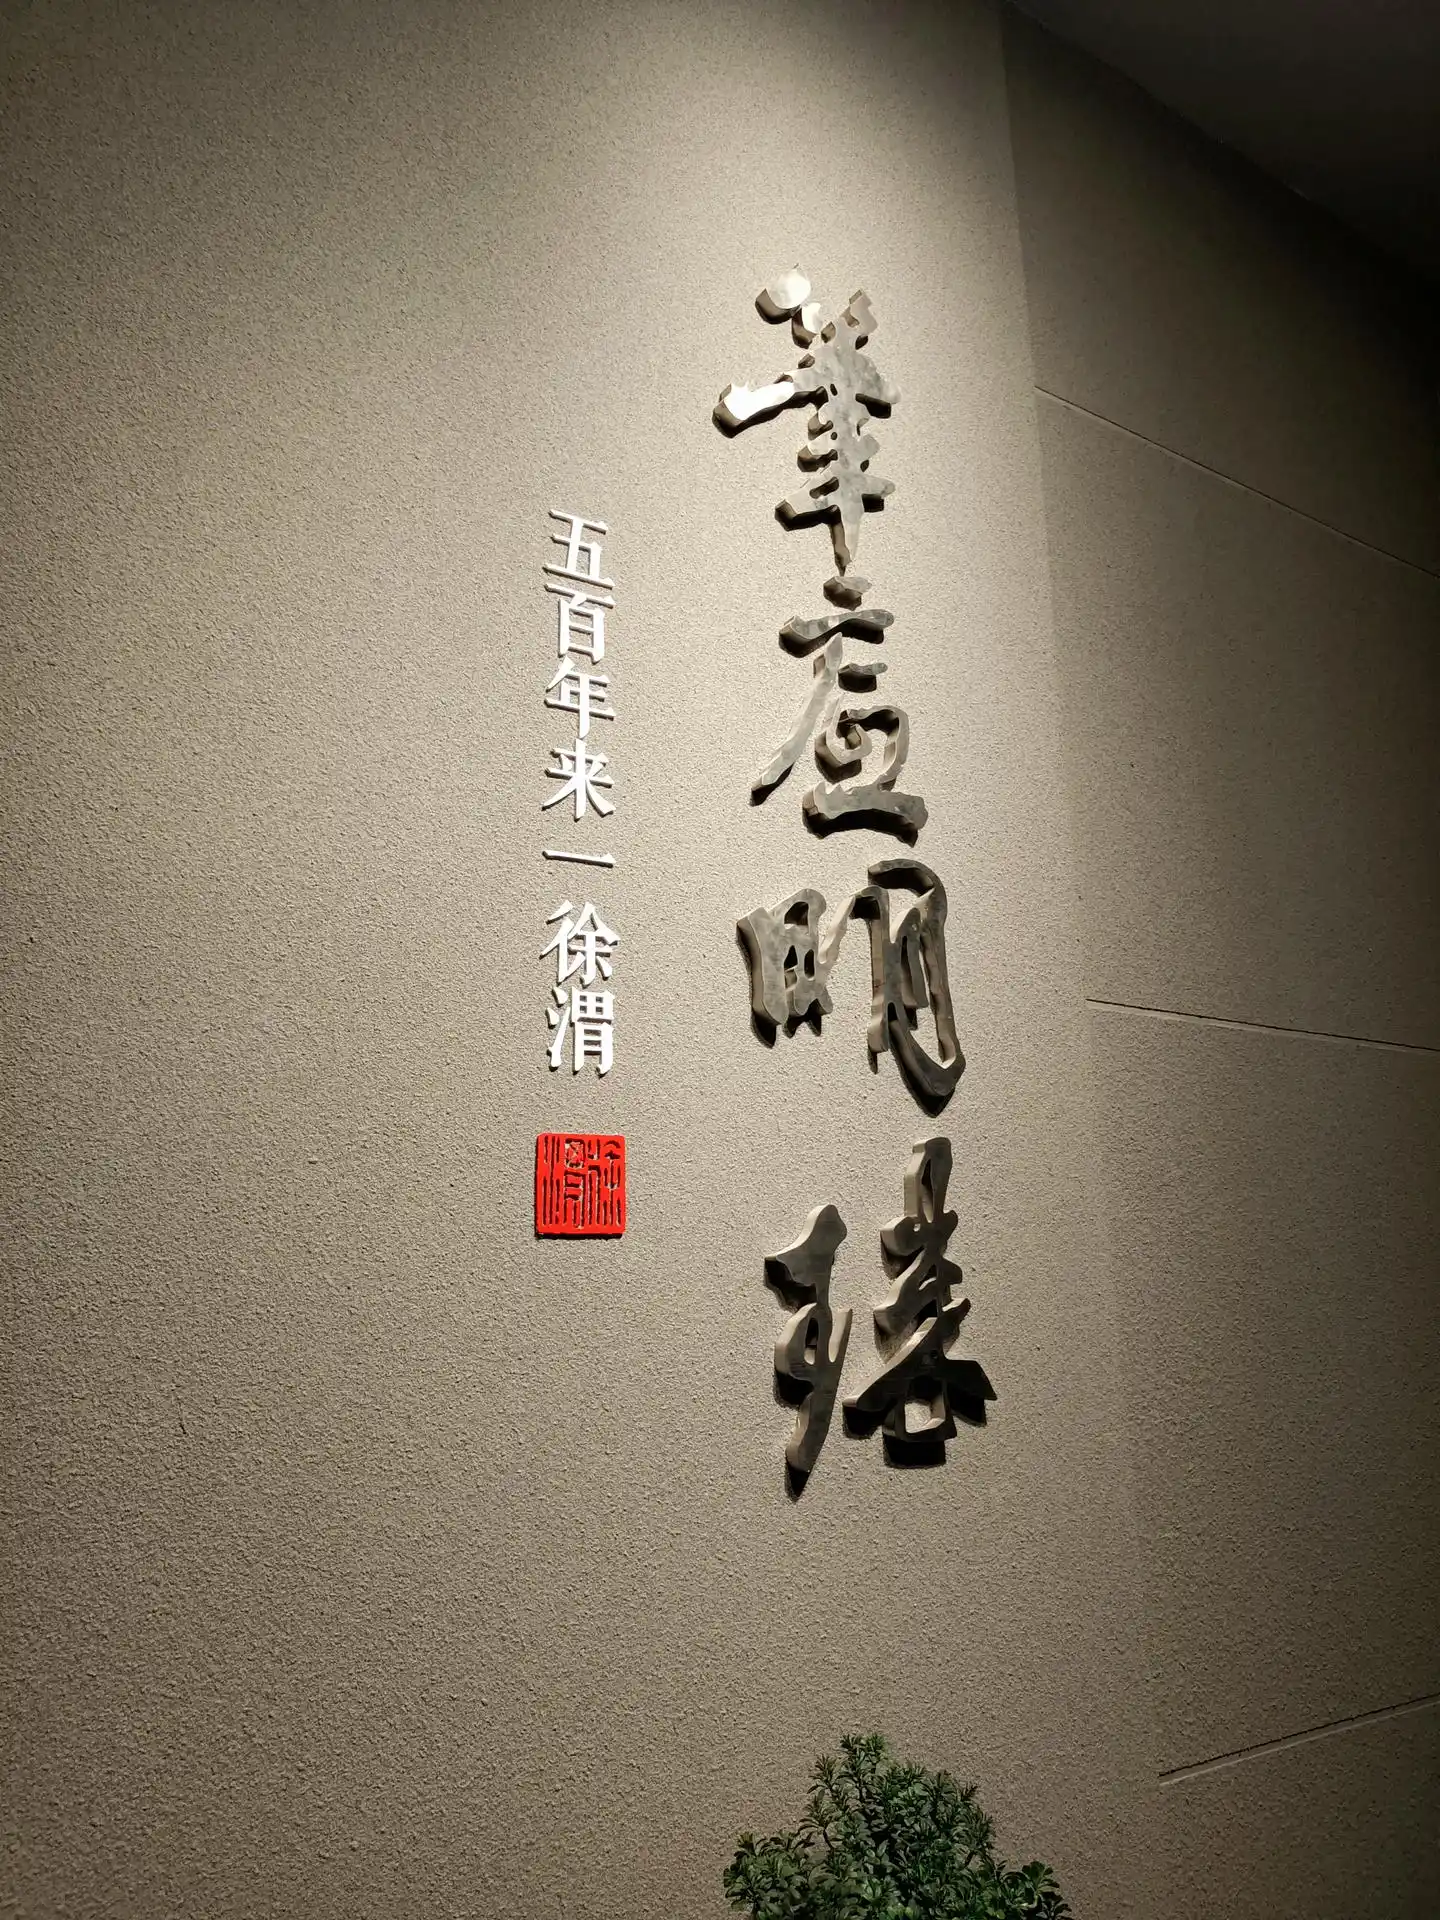 筆底明珠
五百年来一徐渭
徐渭